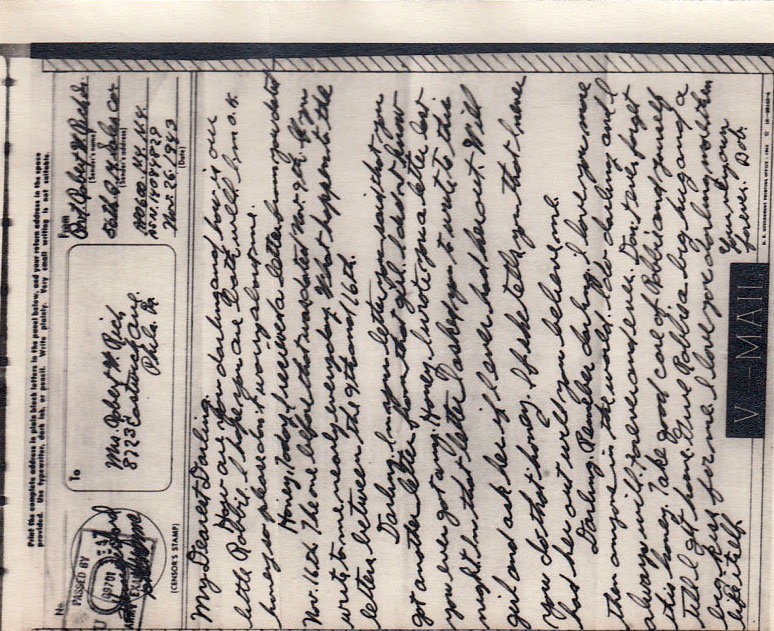 Print the complete address in plain block letters in the panel below, and your return address in the space
provided. Use typewriter, dark ink, or pencil. Write plainly. Very small writing is not suitable.
No.
PASSED BY
U
00701
ARMY EXAMINER
(CENSOR'S STAMP)
To
Mrs. Robert W. Rich
8723 Eastwick Ave.
Phila. Pa
From
Robert W. Rich Jr.
(Sender's name)
(Sender's address)
Nov. 26, 1943
(Date)
My Dearest Darling,
How are you darling and how is our
little Robbie. I hope you are both well. I'm o.k.
honey so please don't worry about me.
Honey, today I received a letter from you dated
Nov. 16th. The one before that was dated Nov. 9th. If you
write to me nearly everyday. What happen to the
letters between the 9th and 16th.
Darling, in your letter you said that you
got another letter from that girl. I didn't know
you ever got any. Honey, I wrote you a letter last
night. In that letter I asked you to write to this
girl and ask her if I ever had her out. Will
you do that honey. If she tells you that I never
had her out will you believe me.
Darling. Remember darling, I love you more
than anyone in the world. I do darling and I
always will, forever and ever. Don't ever forget
this honey. Take good care of Robbie and yourself
till I get home. Give Robbie a big hug and a
big kiss for me. I love you darling, more than
life itself.
Your
forever. Bob
V-MAIL
U. S. GOVERNMENT PRINTING OFFICE